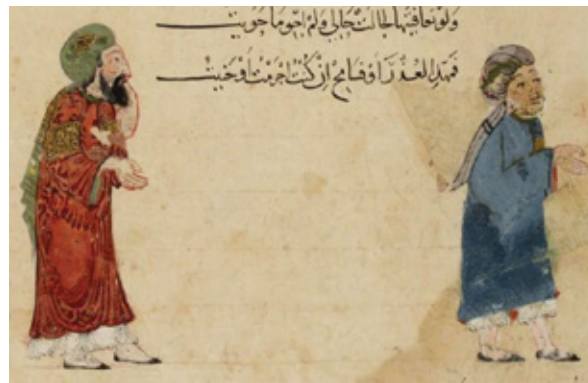 ولو تعافيتها لحالت حالي ولم احو ما حويت
فمهد العذر او فسامح ان كنت اجرمت او جنيت